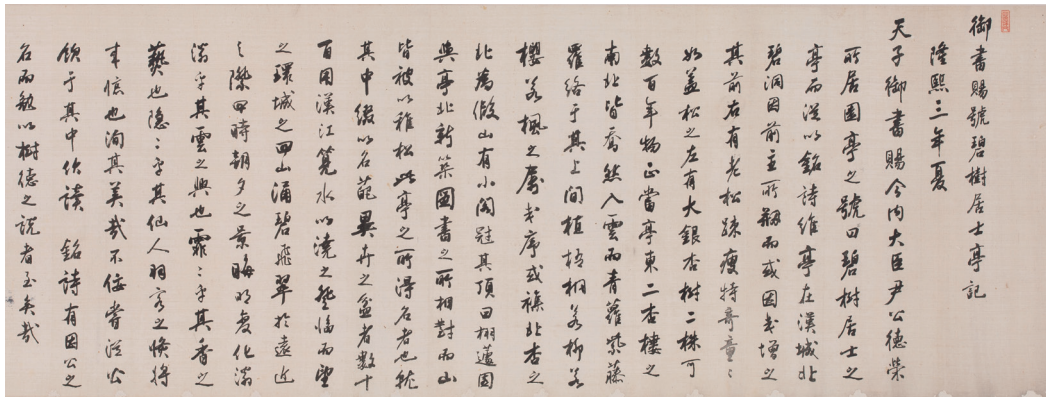 御書賜號碧樹居士亭記
隆熙三年夏
天子御書賜今內大臣尹公德榮
所居園亭之號曰碧樹居士之
亭而從以銘詩維亭在漢城北
碧洞因前主所刱而或因或增之
其前右有老松踈瘦特奇童童
如盖松之左有大銀杏樹二株可
數百年物正當亭東二杏樓之
南北皆喬然入雲而青蘿紫藤
羅絡于其上間植梧桐若柳若
櫻若楓之屬或序或襍北杏之
北為假山有小閣冠其頂曰栩蘧因
與亭北新築圖書之所相對而山
皆被以稚松此亭之所得名者也就
其中綴以名葩異卉之盆者數十
百因漢江筧水以澆之登臨而望
之環城之四山涌碧飛翠於遠近
之際四時朝夕之景晦明變化滃
滃乎其雲之興也霏霏乎其香之
藝也隱隱乎其仙人羽客之倏將
來信也洵其美哉不佞嘗從公
飲于其中伏讀 銘詩有因公之
名而勉以樹德之說者至矣哉